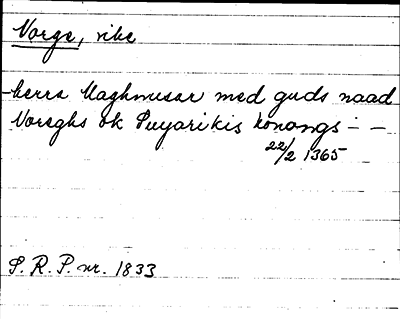 Norge, rike
herra Maghnusar med guds naad
Noreghs ok Suyarikis konongs - -
22/2 1365
S. R. P. nr. 1833